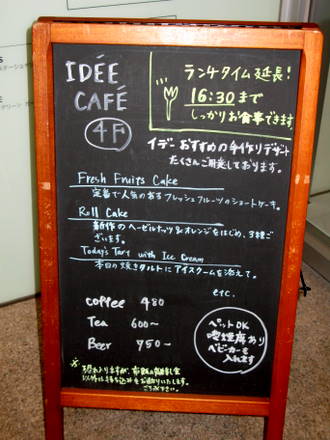 IDÉE
CAFÉ
4F
ランチタイム延長!
16:30まで
しっかりお食事できます
イデーおすすめの手作りデザート
たくさんご用意しております。
Fresh Fruits Cake
定番で人気のあるフレッシュフルーツのショートケーキ。
Roll Cake
新作のヘーゼルナッツ&オレンジをはじめ、3種ご
ざいます。
Today's Tart with Ice Cream
本日の焼きタルトにアイスクリームを添えて。
etc.
coffee 480
Tea 600~
Beer 750~
ペットOK
喫煙席あり
ベビーカーも
入れます
恐れ入りますが、
以外に持ち込みをお断りいたします。
ご了承下さい。